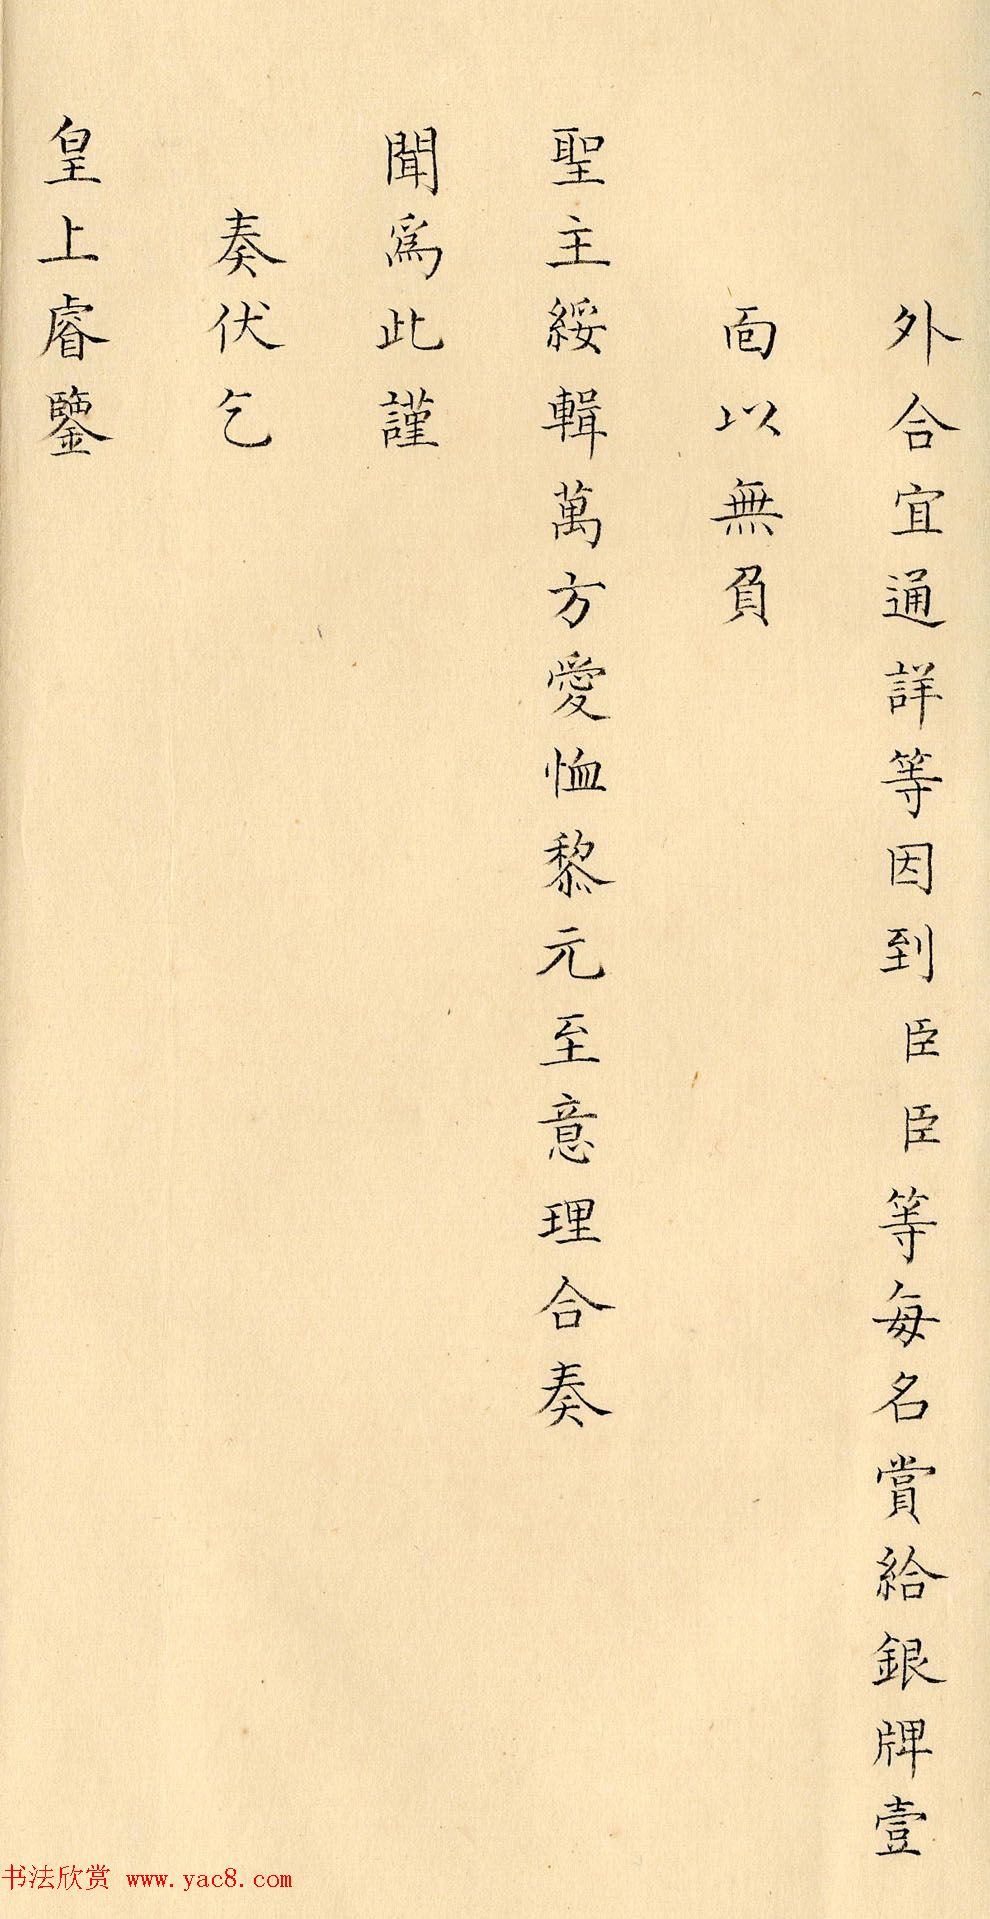 外合宜通詳等因到臣臣等每名賞給銀牌壹
面以無負
聖主綏輯萬方愛恤黎元至意理合奏
聞為此謹
奏伏乞
皇上睿鑒
书法欣赏 www.yac8.com